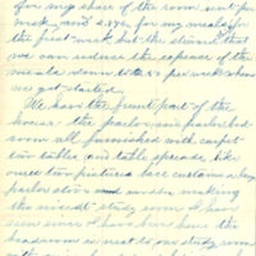 for my share of the room rent per
week and 2.87½ for my meals for
the first week but the steward that
we can reduce the expense of the
meals down to per week when
we get started.
We have the front part of the
house. the parlor and parlor bed
room all furnished with carpet
two tables, and table spreads, like
ours two pictures lace curtains a large
parlor stove and making
the nicest study room I have
seen since I have been here the
bedroom is next to our study room